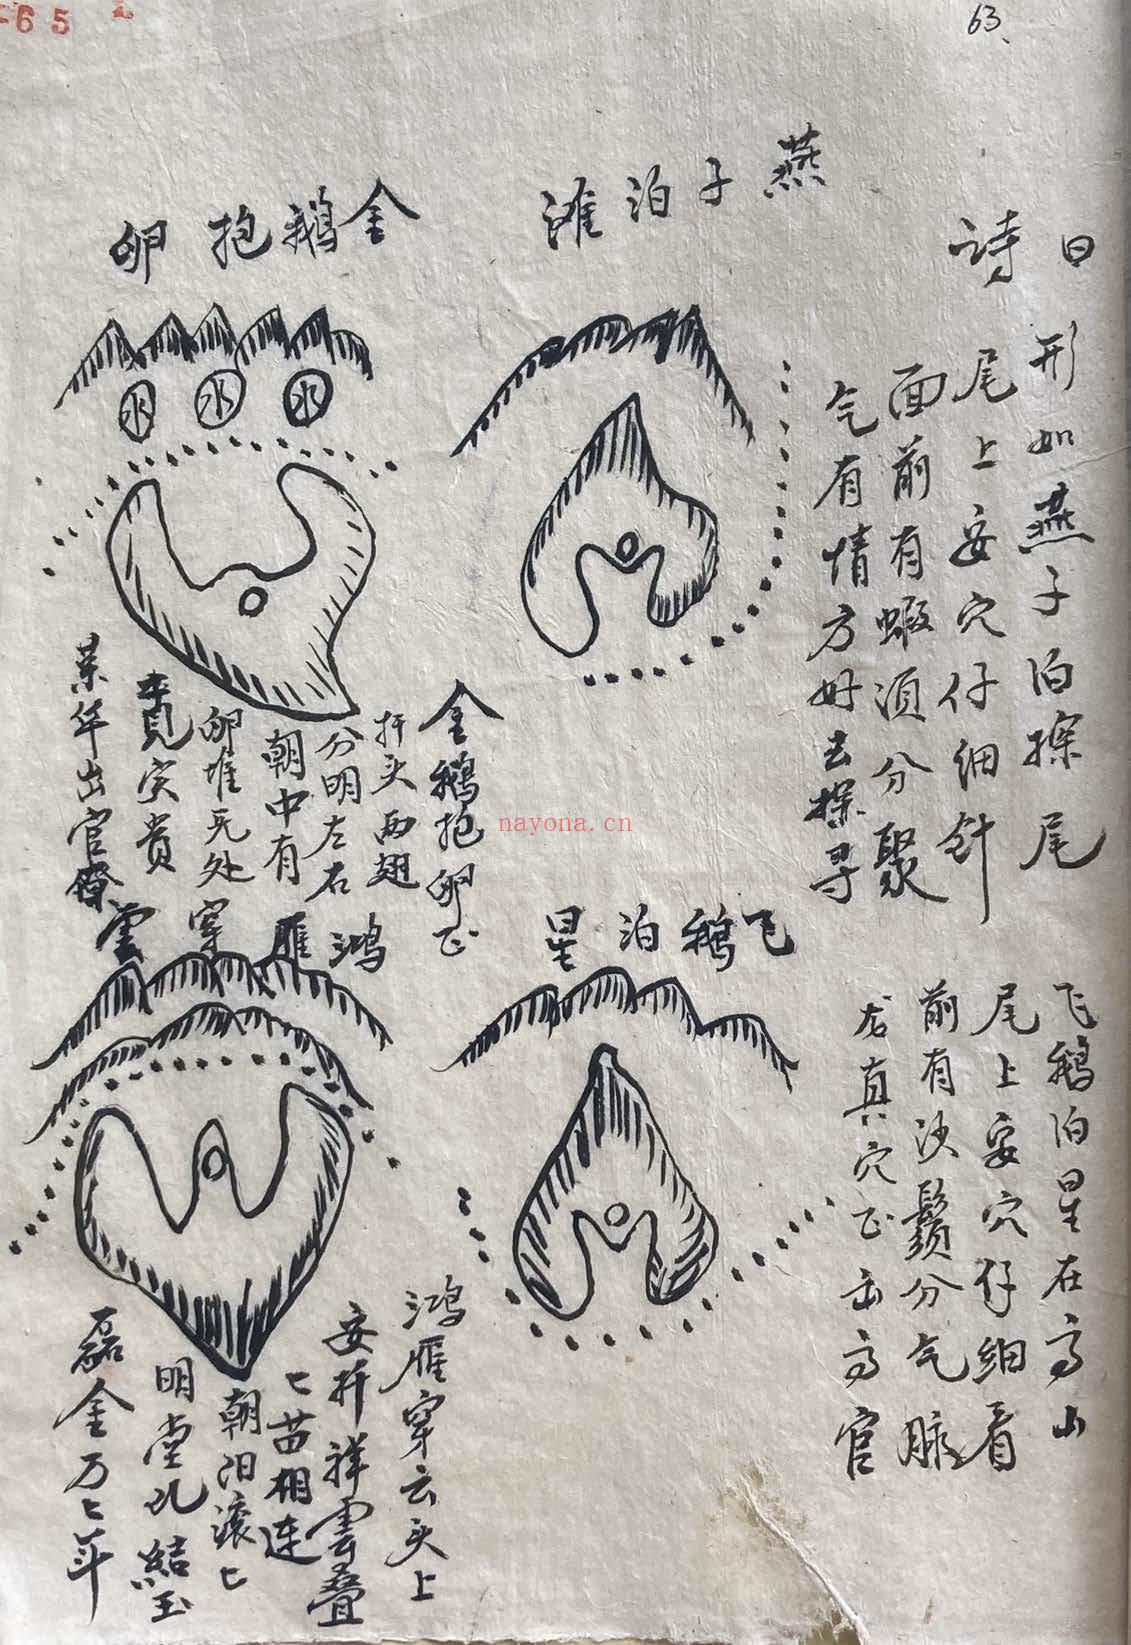 65
63
燕子泊滩
诗曰
形如燕子泊探尾
尾上安穴仔细针
面前有蝦须分聚
气有情方好去探寻
金鹅抱卵
金鹅抱卵正
扦头两翅
分明左右
朝中有
卵堆死处
宾贵
荣华出官僚
nayona.cn
飞鹅泊星
飞鹅泊星在高山
尾上安穴仔细看
前有鬚分气脉
龙真穴正出高官
鸿雁穿雲
鸿雁穿云头上
安扦祥雲叠
匕苗相连
朝阳滚匕
明堂结玉
磊金万匕斗